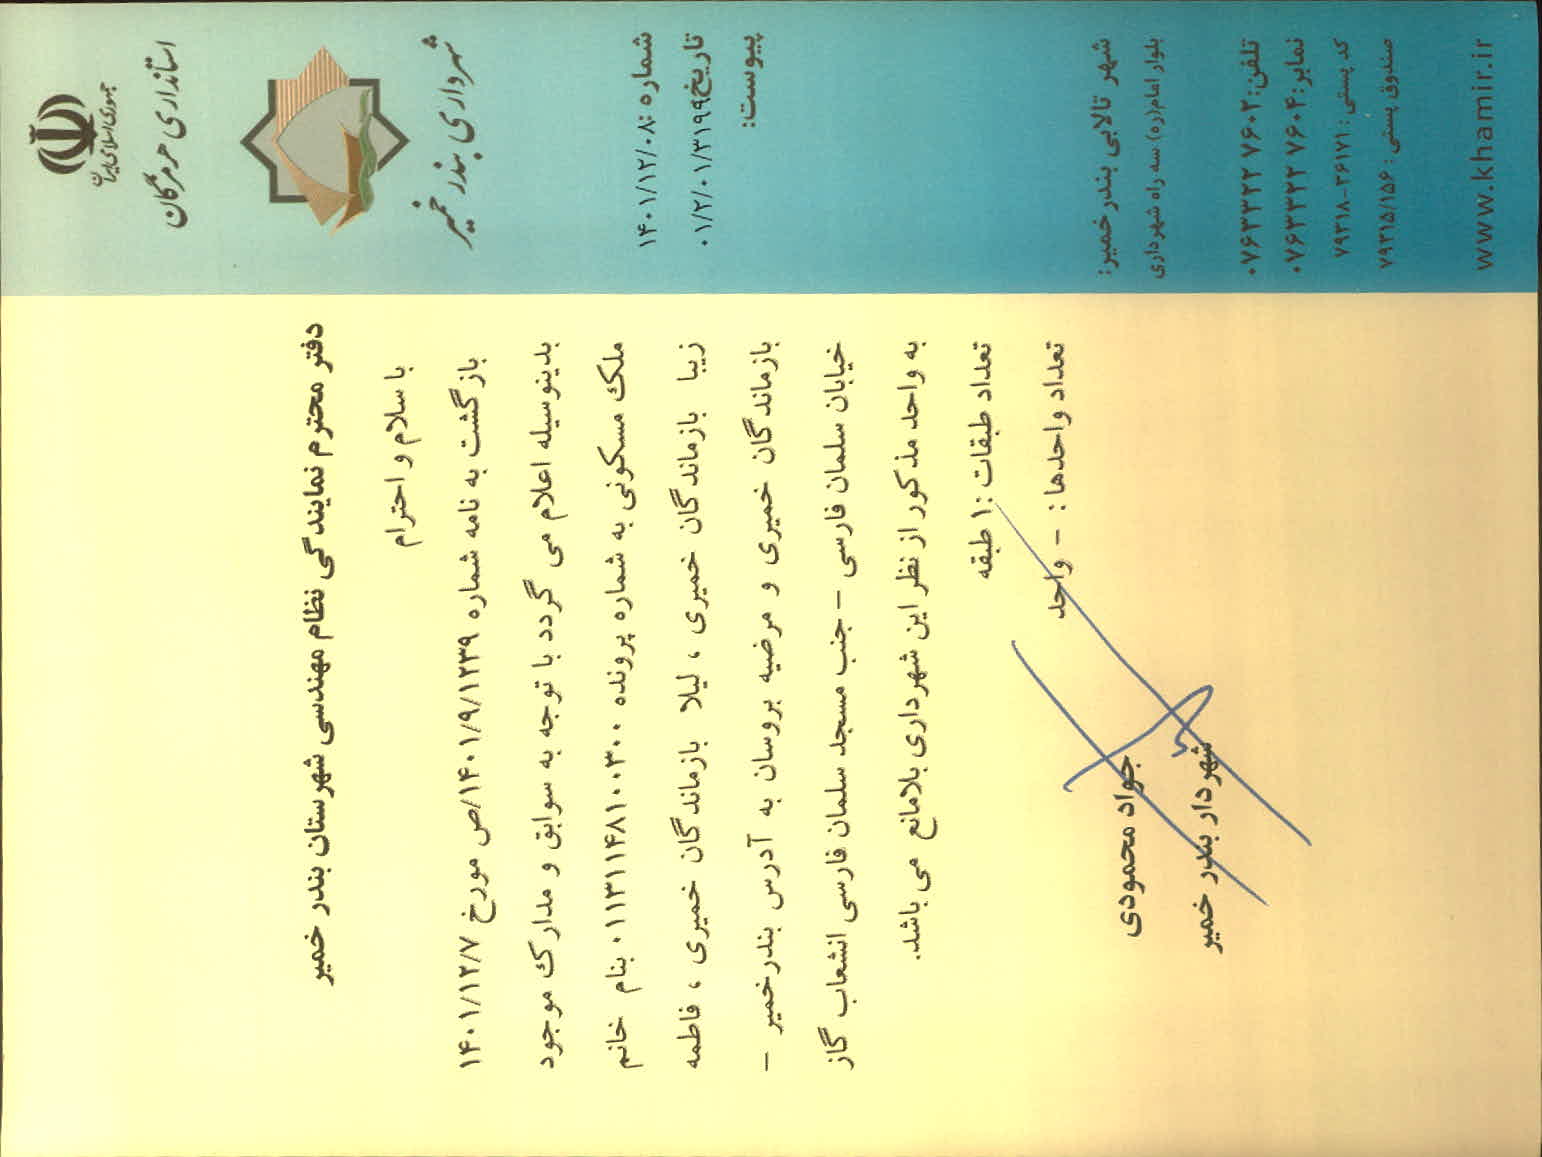 جمهوری اسلامی ایران
استانداری هرمزگان
شهرداری بندر خمیر
شماره: ۱۴۰۱/۱۲/۰۸
تاریخ: ۰۱/۲/۰۱/۳۱۹۹
پیوست:
شهر تالابی بندر خمیر:
بلوار امام(ره) سه راه شهرداری
تلفن: ۰۷۶۳۳۲۲ ۷۶۰۲
نمابر: ۰۷۶۳۳۲۲ ۷۶۰۴
کد پستی: ۷۹۳۱۸-۲۶۱۷۱
صندوق پستی: ۷۹۳۱۵/۱۵۶
www.khamir.ir
دفتر محترم نمایندگی نظام مهندسی شهرستان بندر خمیر
با سلام و احترام
بازگشت به نامه شماره ۱۴۰۱/۹/۱۲۳۹/ص مورخ ۱۴۰۱/۱۲/۷
بدینوسیله اعلام می گردد با توجه به سوابق و مدارک موجود
ملک مسکونی به شماره پرونده ۰۱۱۳۱۱۴۸۱۰۰۳۰۰ بنام خانم
زیبا بازماندگان خمیری ، لیلا بازماندگان خمیری ، فاطمه
بازماندگان خمیری و مرضیه بروسان به آدرس بندرخمیر –
خیابان سلمان فارسی – جنب مسجد سلمان فارسی انشعاب گاز
به واحد مذکور از نظر این شهرداری بلامانع می باشد.
تعداد طبقات :۱ طبقه
تعداد واحدها : - واحد
جواد محمودی
شهردار بندر خمیر